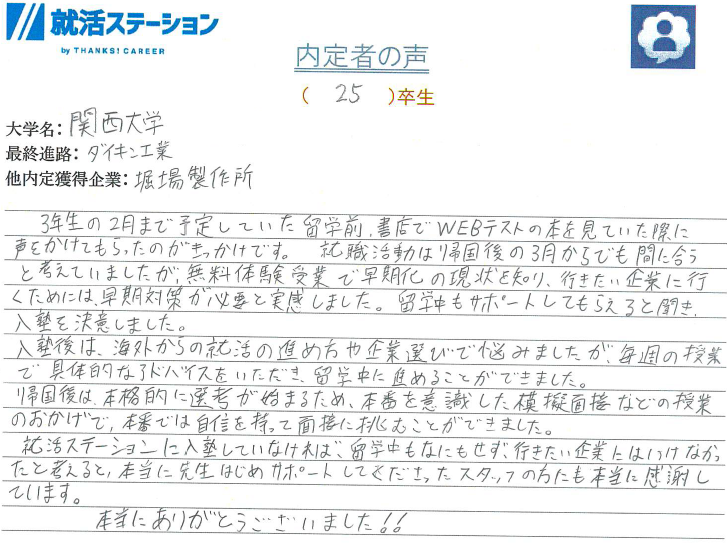 就活ステーション
by THANKS! CAREER
内定者の声
( 25 )卒生
大学名: 関西大学
最終進路: ダイキン工業
他内定獲得企業: 堀場製作所
3年生の2月まで予定していた留学前、書店でWEBテストの本を見ていた際に
声をかけてもらったのがきっかけです。 就職活動は帰国後の3月からでも間に合う
と考えていましたが、無料体験受業で早期化の現状を知り、行きたい企業に行
くためには、早期対策が必要と実感しました。留学中もサポートしてもらえると聞き、
入塾を決意しました。
入塾後は、海外からの就活の進め方や企業選びで悩みましたが、毎週の授業
で具体的なアドバイスをいただき、留学中に進めることができました。
帰国後は、本格的に選考が始まるため、本番を意識した模擬面接などの授業
のおかげで、本番では自信を持って面接に挑むことができました。
就活ステーションに入塾していなければ、留学中もなにもせず、行きたい企業にはいけなかっ
たと考えると、本当に先生はじめサポートしてくださったスタッフの方にも本当に感謝し
ています。
本当にありがとうございました!!